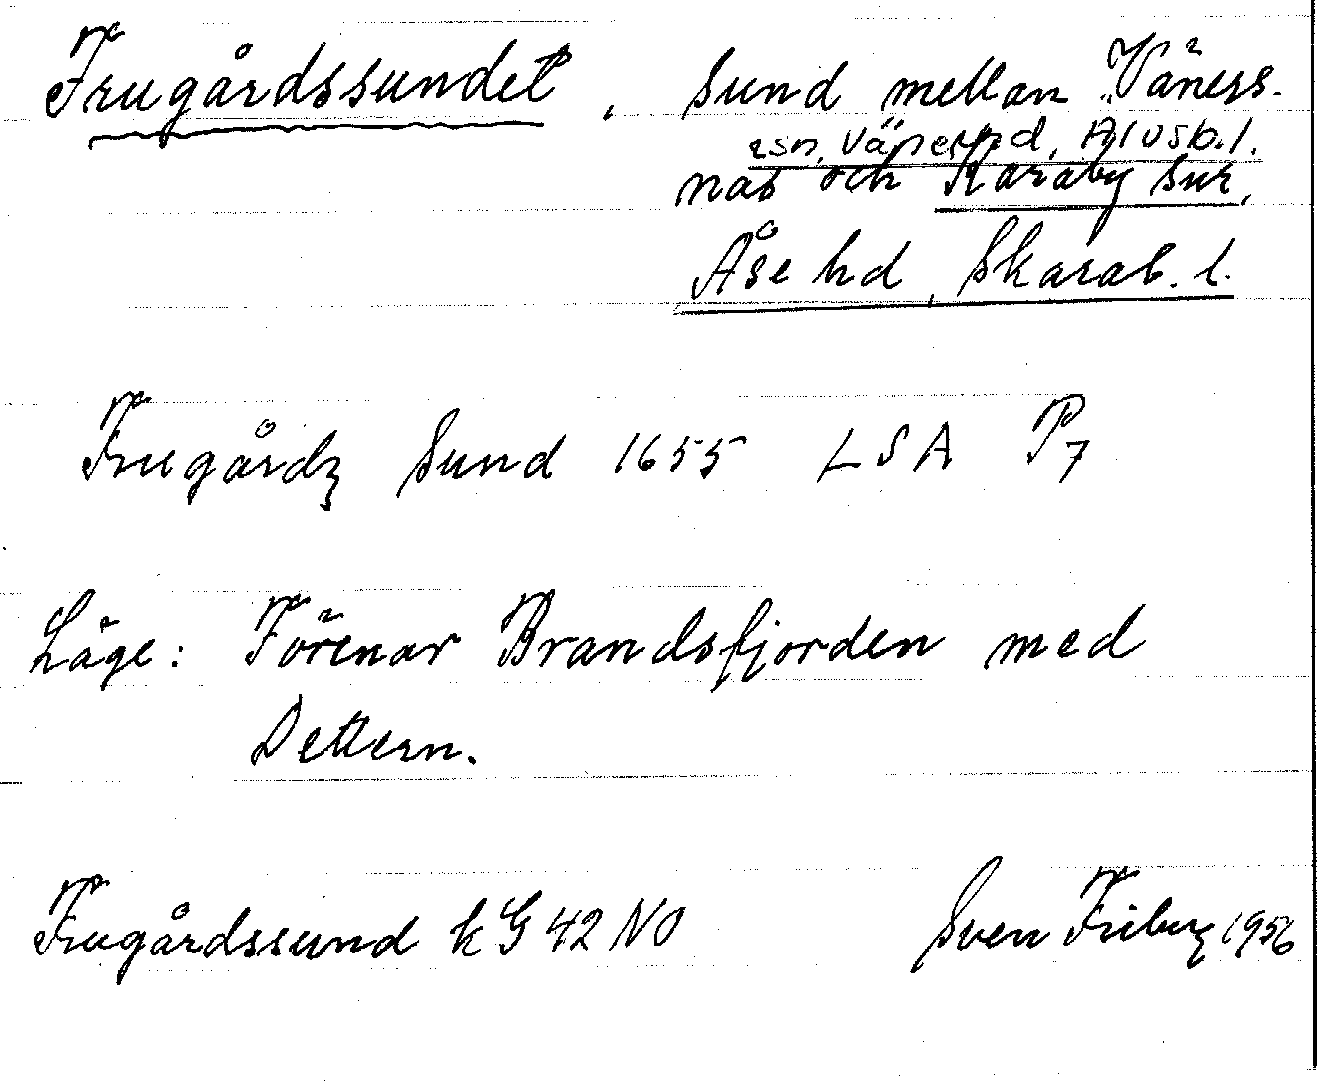 Frugårdssundet, Sund mellan Väners-
rsn, Väne hd, Älvsb. l.
näs och Karaby snr,
Åse hd, Skarab. l.
Frugårdz Sund 1655 LSA P7
Läge: Förenar Brandsfjorden med
Dettern.
Frugårdssund kG 42 NO Sven Friberg 1956